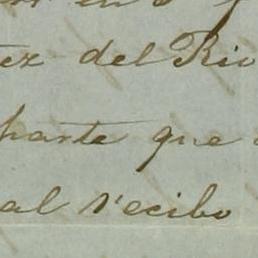 ez del Rio
parte que
al recibo